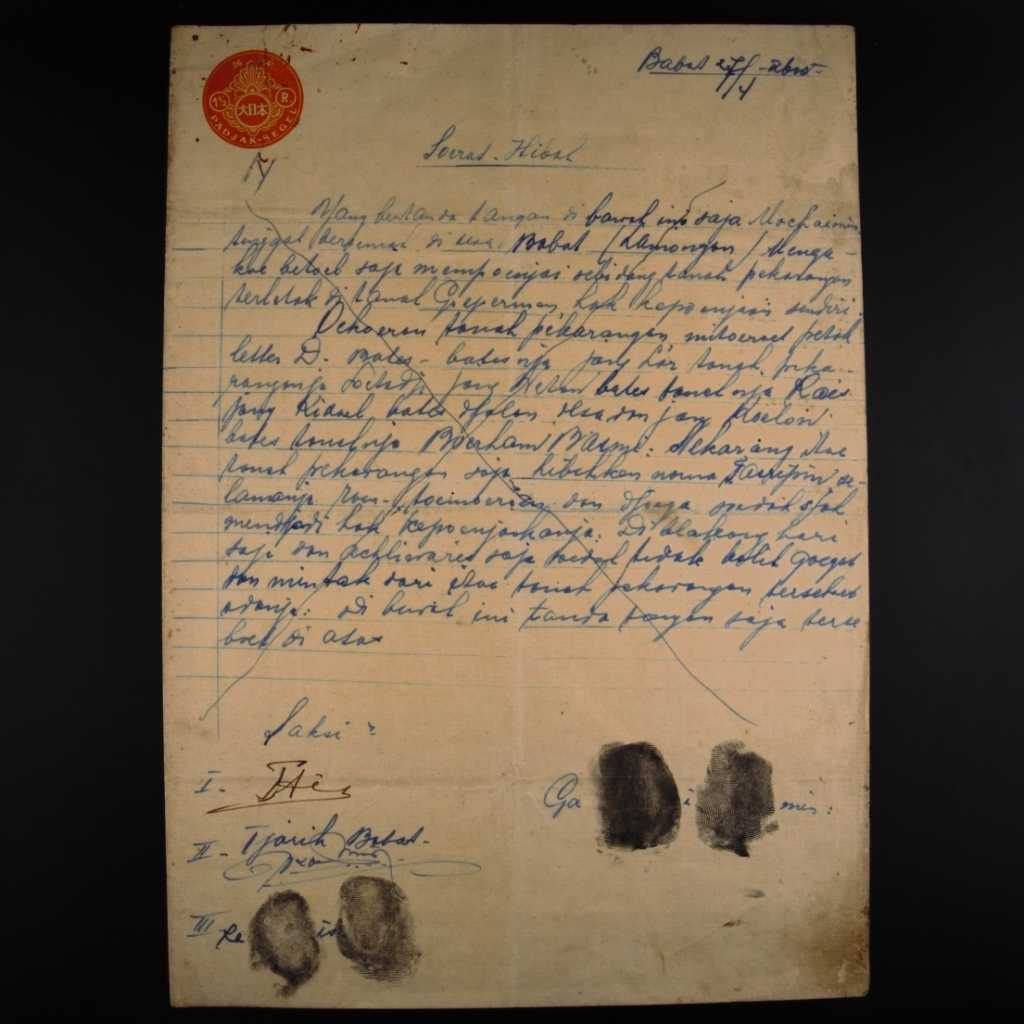 大日本
R
PADJAK-SEGEL
Babat 27/4 - 2605-
Soerat-Hibah
Yang bertanda tangan di bawah ini saja Mochaimin
tinggal bertempat di desa Babat (Lamongan) Menga-
koe betoel saja mempoenjai sebidang tanah pekarangan
terletak di tanah hak kepoenjaän sendiri.
Oekoeran tanah pekarangan mitoeroet petok
letter D. Bates-batesnja jang Lor tanah peka-
rangannja jang Wetan bates tanahnja Rais
jang Kidoel bates djalan desa dan jang Koelon
bates tanahnja Boerham : Sekarang itoe
tanah pekarangan saja hibahkan nama se-
lamanja toeroen-temoeroen dan djoega soedah sjah
mendjadi hak kepoenjaännja. Di blakang hari
saja dan achliwaris saja soedah tidak bolih goegat
dan mintak dari itoe tanah pekarangan terseboet
adanja: di bawah ini tanda tangan saja terse
boet di atas
Saksi:
I -
II - Tjarik Babat-
III